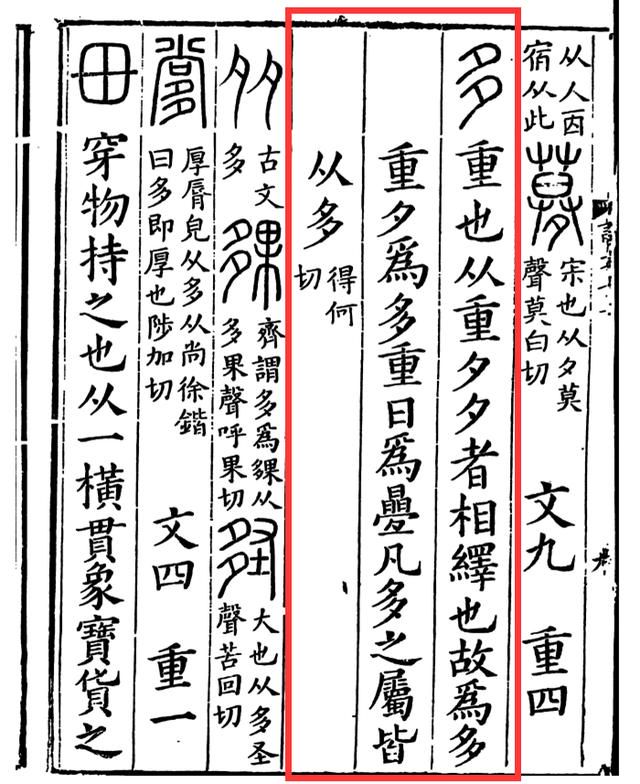 从人因
宿从此
𦿌
宋也从夕莫
聲莫白切
文九 重四
多 重也从重夕夕者相繹也故爲多
重夕爲多重日爲曡凡多之屬皆
从多
得何
切
𡖇
古文
多
夥
齊謂多爲夥从
多果聲呼果切
𡖅
大也从多圣
聲苦回切
𡖤
厚脣皃从多从尚徐鍇
曰多即厚也陟加切
文四 重一
毌 穿物持之也从一橫貫象寶貨之